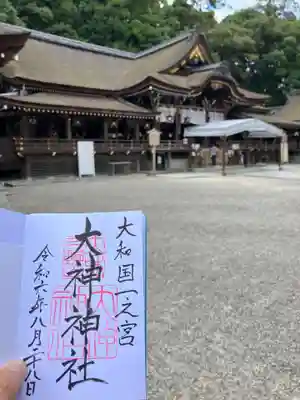 大和国一之宮
大神神社
令和六年八月二十八日